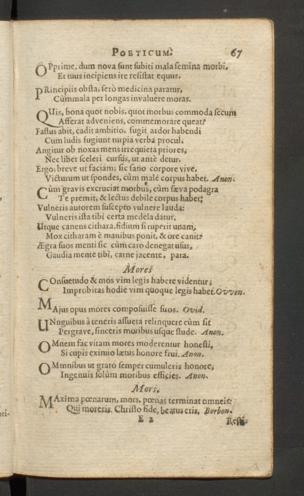 POETICUM. 67
OPprime, dum nova sunt subiti mala semina morbi,
Et tuus incipiens ire resistat equus.
PRincipiis obsta, serò medicina paratur,
Cùm mala per longas invaluere moras.
QUis, bona quot nobis, quot morbus commoda secum
Afferat adveniens, commemorare queat?
Fastus abit, cadit ambitio, fugit audor habendi
Cum ludis fugiunt turpia verba procul.
Angitur ob noxas mens irrequieta priores,
Nec libet sceleri cursus, ut antè detur.
Ergo: breve ut faciam; sic sano corpore vive,
Victurum ut spondes, cùm malè corpus habet. Anon.
CUm gravis excruciat morbus, cùm sæva podagra
Te premit, & lectus debile corpus habet;
Vulneris autorem suscepto vulnere lauda:
Vulneris ista tibi certa medela datur,
Utque canens cithara, fidium si ruperit unam,
Mox citharam è manibus ponit, & ore canit:
Ægra suos menti sic cum caro denegat usus,
Gaudia mente tibi, carne jacente, para.
Mores
COnsuetudo & mos vim legis habere videntur;
Improbitas hodie vim quoque legis habet. Ovven.
MAjus opus mores composuisse suos. Ovid.
UNguibus à teneris assueta relinquere cùm sit
Pergrave, sinceris moribus usque stude. Anon.
OMnem fac vitam mores moderentur honesti,
Si cupis eximio lætus honore frui. Anon.
OMnibus ut grato semper cumuleris honore,
Ingenuis solùm moribus efficies. Anon.
Mors.
MAxima pœnarum, mors, pœnas terminat omneis:
Qui moreris, Christo fide, beatus eris. Borbon.
E 2